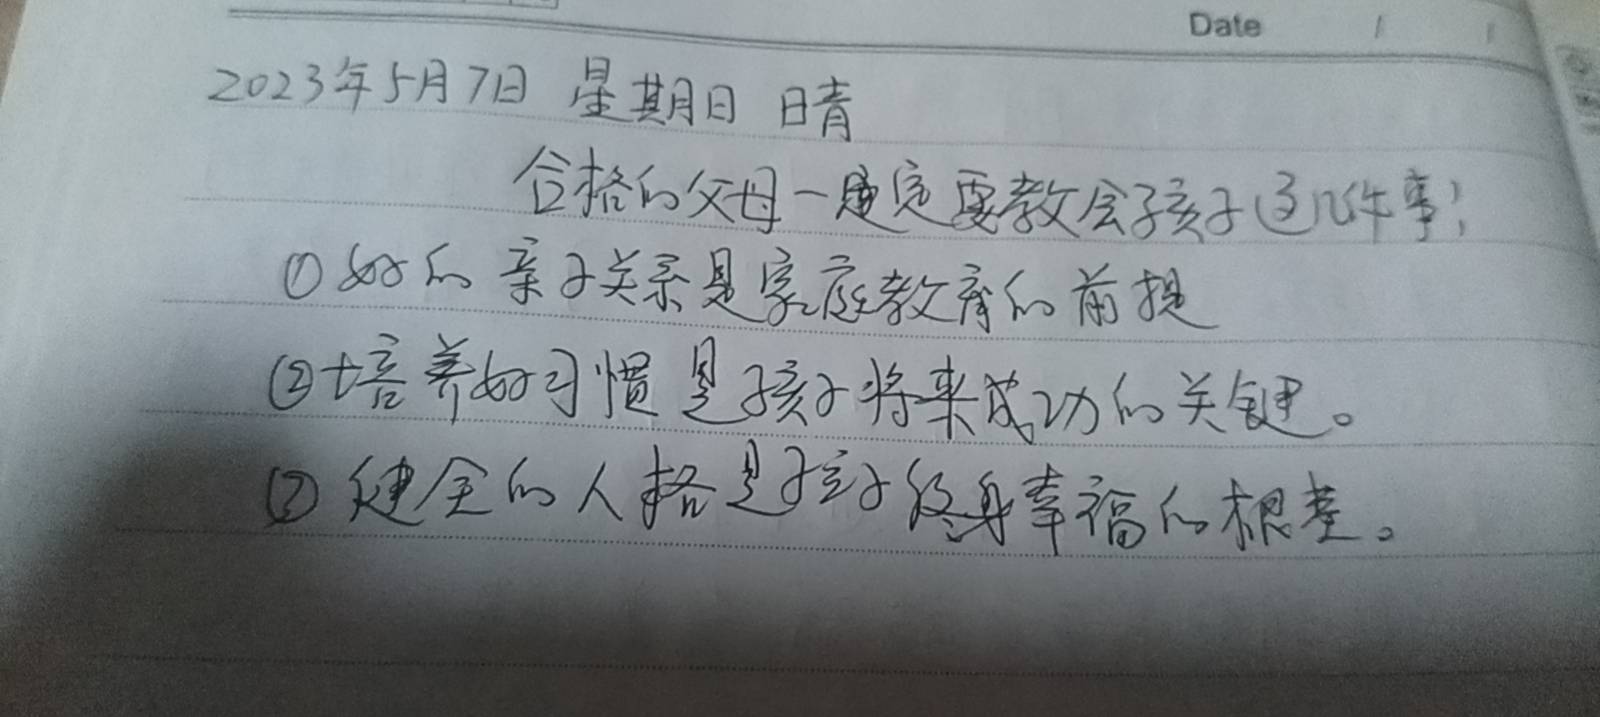 Date / /
2023年5月7日 星期日 晴
合格的父母一定要教会孩子这几件事!
①好的亲子关系是家庭教育的前提
②培养好习惯是孩子将来成功的关键。
③健全的人格是孩子终身幸福的根基。